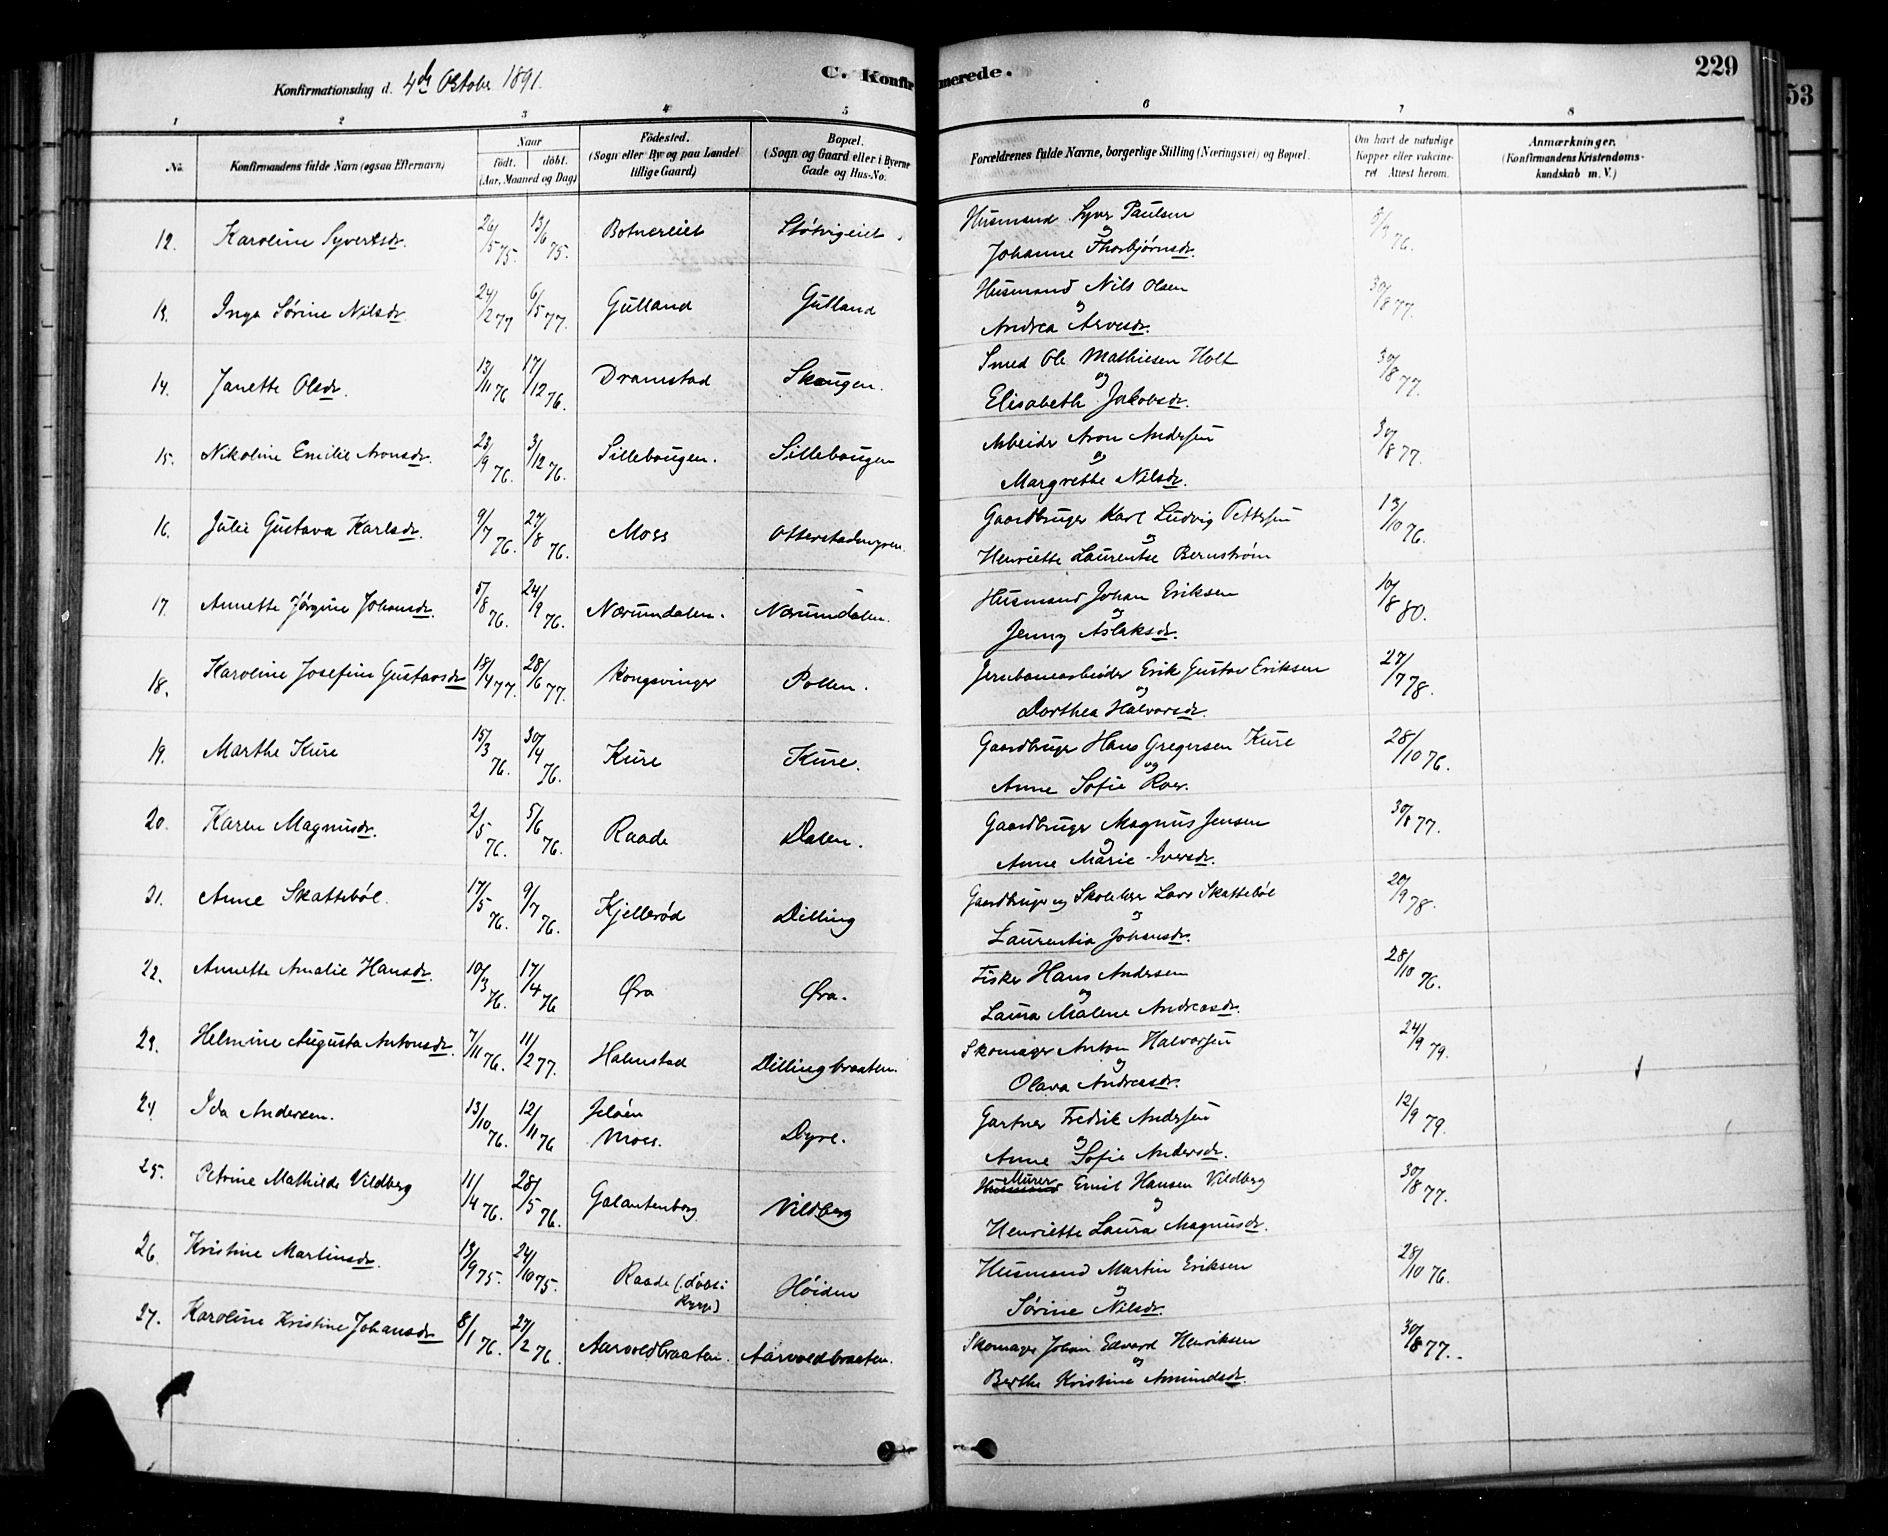 Konfirmationsdag d. 4de October 1891.
C. Konfirmerede.
229
53
1 2 3 4 5 6 7 8
No. Konfirmandens fulde Navn (ogsaa Efternavn) Naar født. døbt. (Aar, Maaned og Dag) Fødested. (Sogn eller By og paa Landet tillige Gaard) Bopæl. (Sogn og Gaard eller i Byerne Gade og Hus-No. Forældrenes fulde Navne, borgerlige Stilling (Næringsvei) og Bopæl. Om havt de naturlige Kopper eller vakcineret Attest herom. Anmærkninger. (Konfirmandens Kristendomskundskab m. V.)
12. Karoline Syvertsdr. 26/5 75. 13/6 75. Botnereiet Støtvigeiet. Husmand Syver Paulsen 8/9 76.
og Johanne Thorbjørnsdr.
13. Inga Sørine Nilsdr 24/2 77 6/5 77. Gulland Gulland Husmand Nils Olsen 30/8 77.
og Andrea Arvesdr.
14. Janette Olsdr. 13/11 76 17/12 76. Dramstad Skaugen. Smed Ole Mathiesen Holt 30/8 77.
og Elisabeth Jakobsdr.
15. Nikoline Emilie Aronsdr. 23/9 76. 3/12 76. Sillebaugen. Sillebaugen Arbeider Aron Andersen 30/8 77.
og Margrethe Nilsdr.
16. Julie Gustava Karlsdr. 9/7 76. 27/8 76. Moss Otterstadmyren. Gaardbruger Karl Ludvig Pettersen 13/10 76.
og Henriette Laurentse Bernstrøm
17. Annette Jørgine Johansdr 5/8 76. 24/9 76. Nærumdalen. Nærumdalen. Husmand Johan Eriksen 10/8 80.
og Jenny Aslaksdr.
18. Karoline Josefine Gustavsdr 18/4 77. 28/6 77. Kongsvinger Pollen. Jernbanearbeider Erik Gustav Eriksen 27/7 78.
og Dorthea Halvorsdr.
19. Marthe Kure 15/3 76. 30/4 76. Kure Kure. Gaardbruger Hans Gregersen Kure 28/10 76.
og Anne Sofie Roer.
20. Karen Magnusdr. 2/5 76. 5/6 76. Raade Dalen. Gaardbruger Magnus Jensen 30/8 77.
og Anne Marie Iversdr.
21. Anne Skattebøl. 17/5 76. 9/7 76. Kjellerød Dilling Gaardbruger og Skolelærer Lars Skattebøl 20/9 78.
og Laurentia Johansdr.
22. Annette Amalie Hansdr. 10/3 76. 17/4 76 Øra Øra. Fisker Hans Andersen 28/10 76.
og Laura Malene Andreasdr.
23. Helmine Augusta Antonsdr. 7/11 76. 11/2 77. Halmstad Dillingbraaten. Skomager Anton Halvorsen 24/9 79.
og Olava Andreasdr.
24. Ida Andersen. 13/10 76. 12/11 76 Jeløen Moss. Dyre. Gartner Fredrik Andersen 12/9 79.
og Anne Sofie Andersdr.
25. Petrine Mathilde Vildberg 11/4 76. 28/5 76. Galantenborg Vildberg Husmand Murer Emil Hansen Vildberg 30/8 77.
og Henriette Laura Magnusdr.
26. Kristine Martinsdr. 13/9 75. 24/10 75. Raade (døbt i Rygge) Høiden Husmand Martin Eriksen 28/10 76.
og Sørine Nilsdr.
27. Karoline Kristine Johansdr 8/1 76. 27/2 76. Aarvoldbraaten. Aarvoldbraaten. Skomager Johan Edvard Henriksen 30/8 77.
og Berthe Kristine Amundsdr.